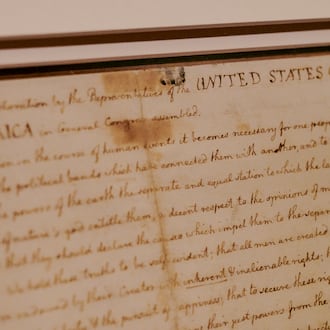 claration by the Representatives of the UNITED STATES
RICA in General Congress assembled.
en in the course of human events it becomes necessary for one people
the political bands which have connected them with another, and to
he powers of the earth the separate and equal station to which the la
of nature's god entitle them, a decent respect to the opinions of m
that they should declare the causes which impel them to the separa
We hold these truths to be self-evident; that all men are created
endowed by their Creator with inherent & inalienable rights; th
& the pursuit of happiness; that to secure these rig
their just powers from the